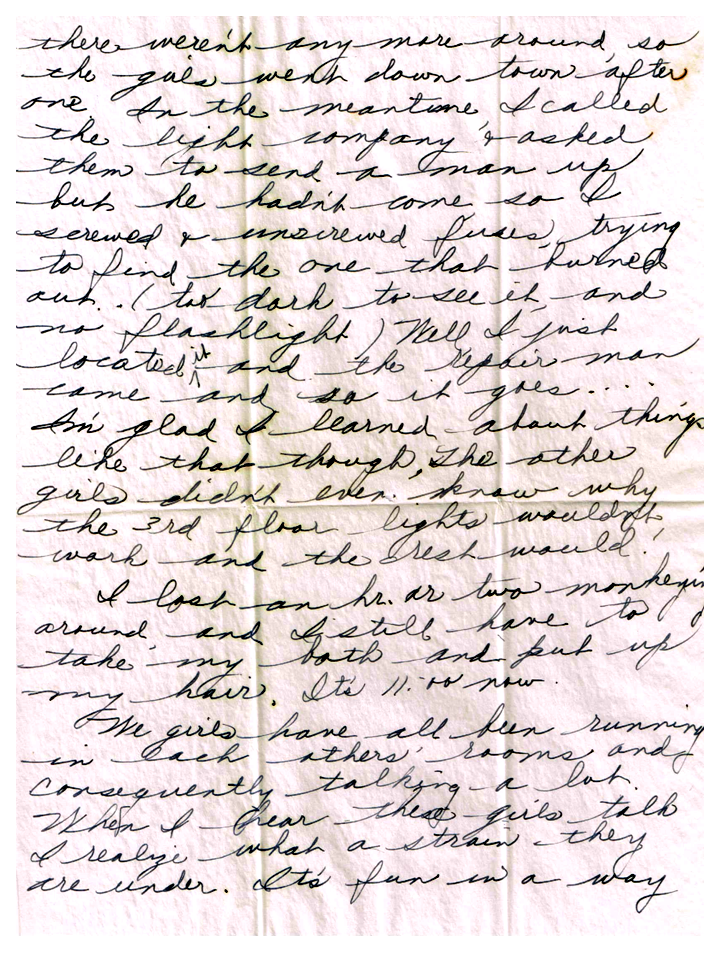 there weren't any more around, so
the girls went down town after
one. In the meantime I called
the light company & asked
them to send a man up
but he hadn't come so I
screwed & unscrewed fuses, trying
to find the one that burned
out. (too dark to see it, and
no flashlight) Well I just
located it and the repair man
came and so it goes....
I'm glad I learned about things
like that though, the other
girls didn't even know why
the 3rd floor lights wouldn't
work and the rest would!
I lost an hr. or two monkeying
around and I still have to
take my bath and put up
my hair. It's 11:00 now.
We girls have all been running
in each others' rooms and
consequently talking a lot.
When I hear these girls talk
I realize what a strain they
are under. It's fun in a way